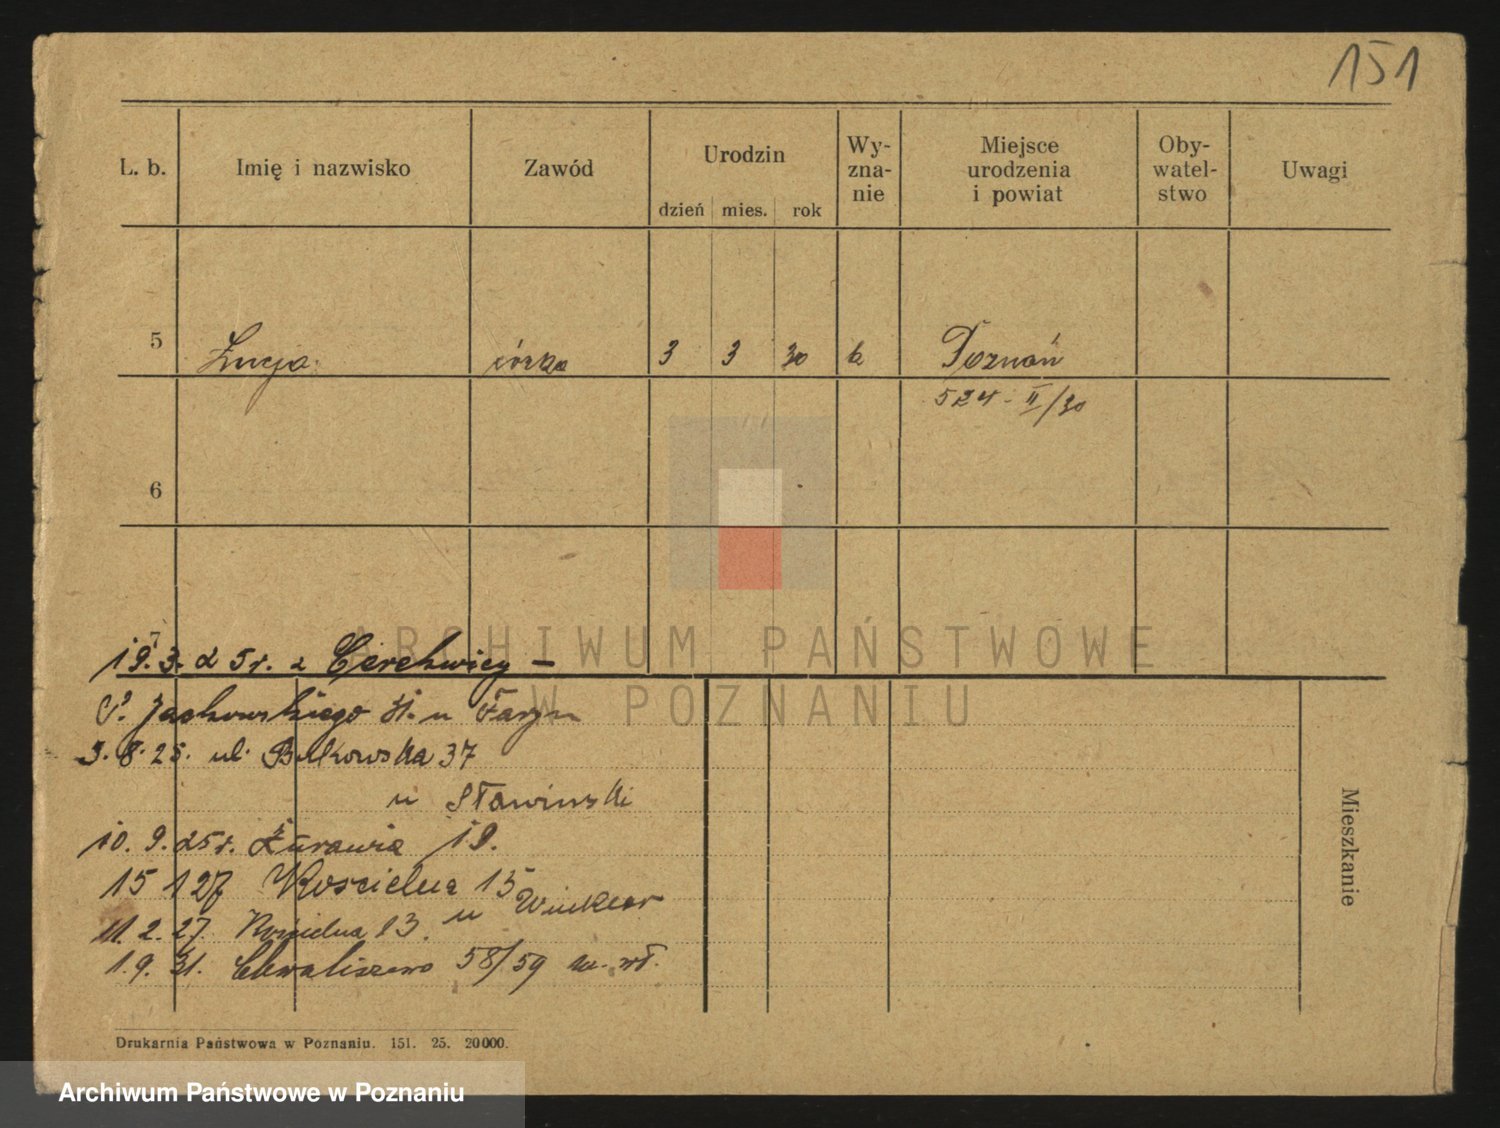 151
L. b. Imię i nazwisko Zawód Urodzin Wy-zna-nie Miejsce urodzenia i powiat Oby-watel-stwo Uwagi
dzień mies. rok
5 Łucja córka 3 3 30 k Poznań
524 - II/30
6
7
19. 3. 25 r. z Cerekwicy -
Jackowskiego 41. u Faryn
3. 8. 25. ul. Bukowska 37
u Sławinski
10. 9. 25 r. Żurawia 19.
15 1 27 Kościelna 15
u Winkler
11. 2. 27. Kościelna 13.
1. 9. 31. Chwaliszewo 58/59 m. wł.
Mieszkanie
Drukarnia Państwowa w Poznaniu. 151. 25. 20000.
ARCHIWUM PAŃSTWOWE
W POZNANIU
Archiwum Państwowe w Poznaniu